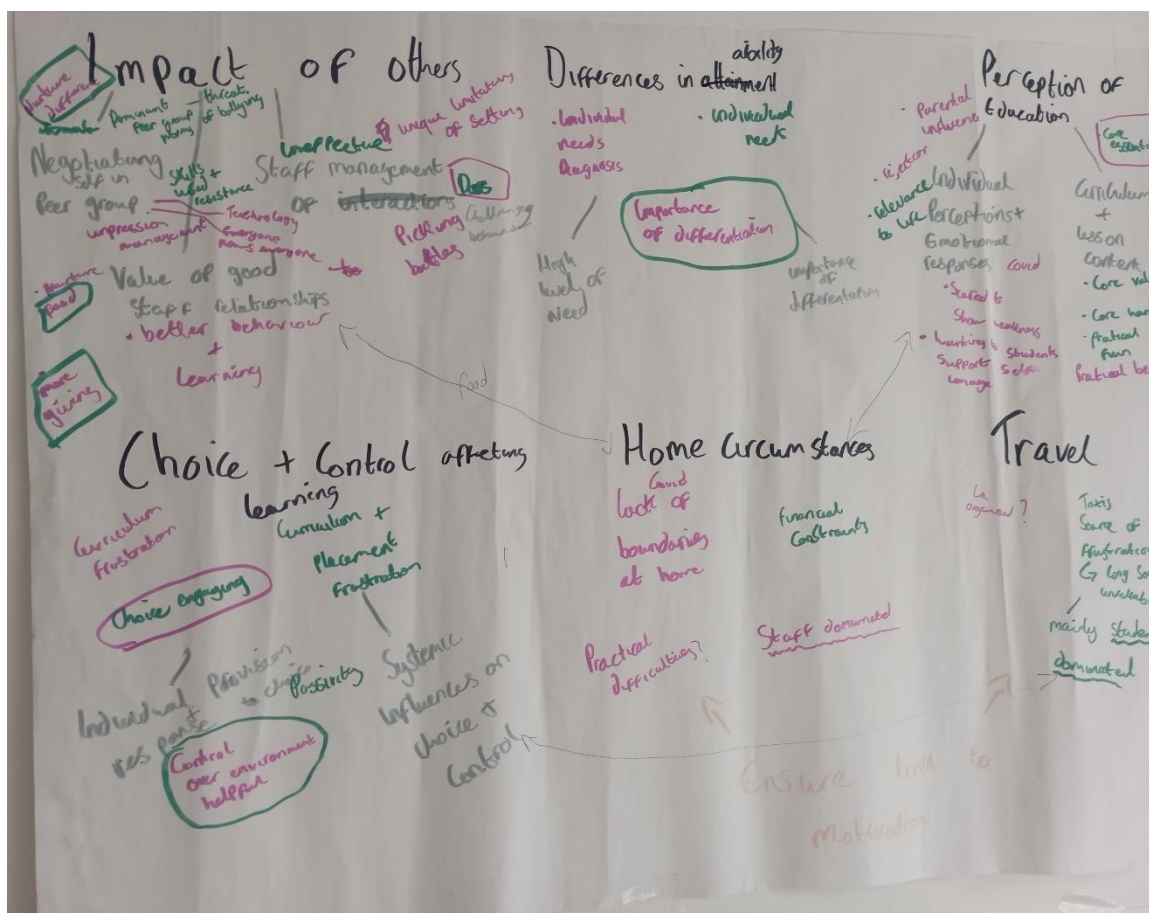 Impact of others
Nurture
different
Dominant
Peer group
norms
- threat
of bullying
Negotiating
self in
Peer group
impression
management
Skills
used +
resistance
Technology
Everyone
knows everyone
Ineffective
Staff management
of interactions
unique limitations
of setting
Dogs
Picking
battles
Challenging
behaviour
Nurture
food
Value of good
Staff relationships
• better behaviour
+
Learning
more
giving
Differences in attainment
ability
• Individual
needs
Diagnosis
High
levels of
Need
• individual
needs
Importance
of differentiation
importance
of
differentiation
Perception of
Education
• Parental
influence
• rejection
• relevance
to life
Individual
Perceptions +
Emotional
responses covid
• Scared to
Show weakness
• wanting
Support
Students
Self
image
Core
Curriculum
+
lesson
content
• Core
• Core
• Pratical
fun
Pratical
food
Choice + Control affecting
learning
Curriculum
frustration
Choice engaging
Individual
response
Provision
to choice
Passivity
Control
over environment
helpful
Curriculum +
Placement
frustration
Systemic
influences on
choice +
Control
Home Circumstances
Covid
lack of
boundaries
at home
Financial
Constraints
Practical
difficulties?
Staff dominated
Travel
La
organised?
Taxis
Source of
frustration
Long
mainly
dominated
Ensure link to
Motivation